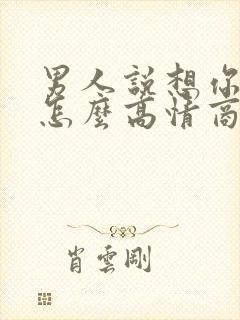 男人説想你
怎麼高情商
肖雲剛